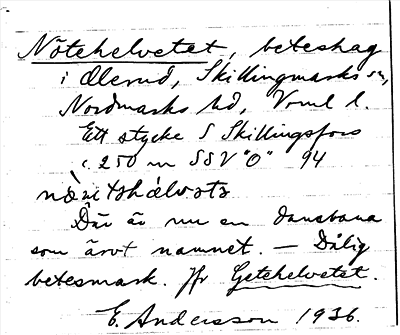 Nötehelvetet, beteshag
i Älerud, Skillingmarks sn,
Nordmarks hd, Vrml l.
Ett stycke S Skillingsfors
c. 250 m SSV "O" 94
Där är nu en dansbana
som ärvt namnet. — Dålig
betesmark. Jfr Getehelvetet.
E. Andersson 1936.